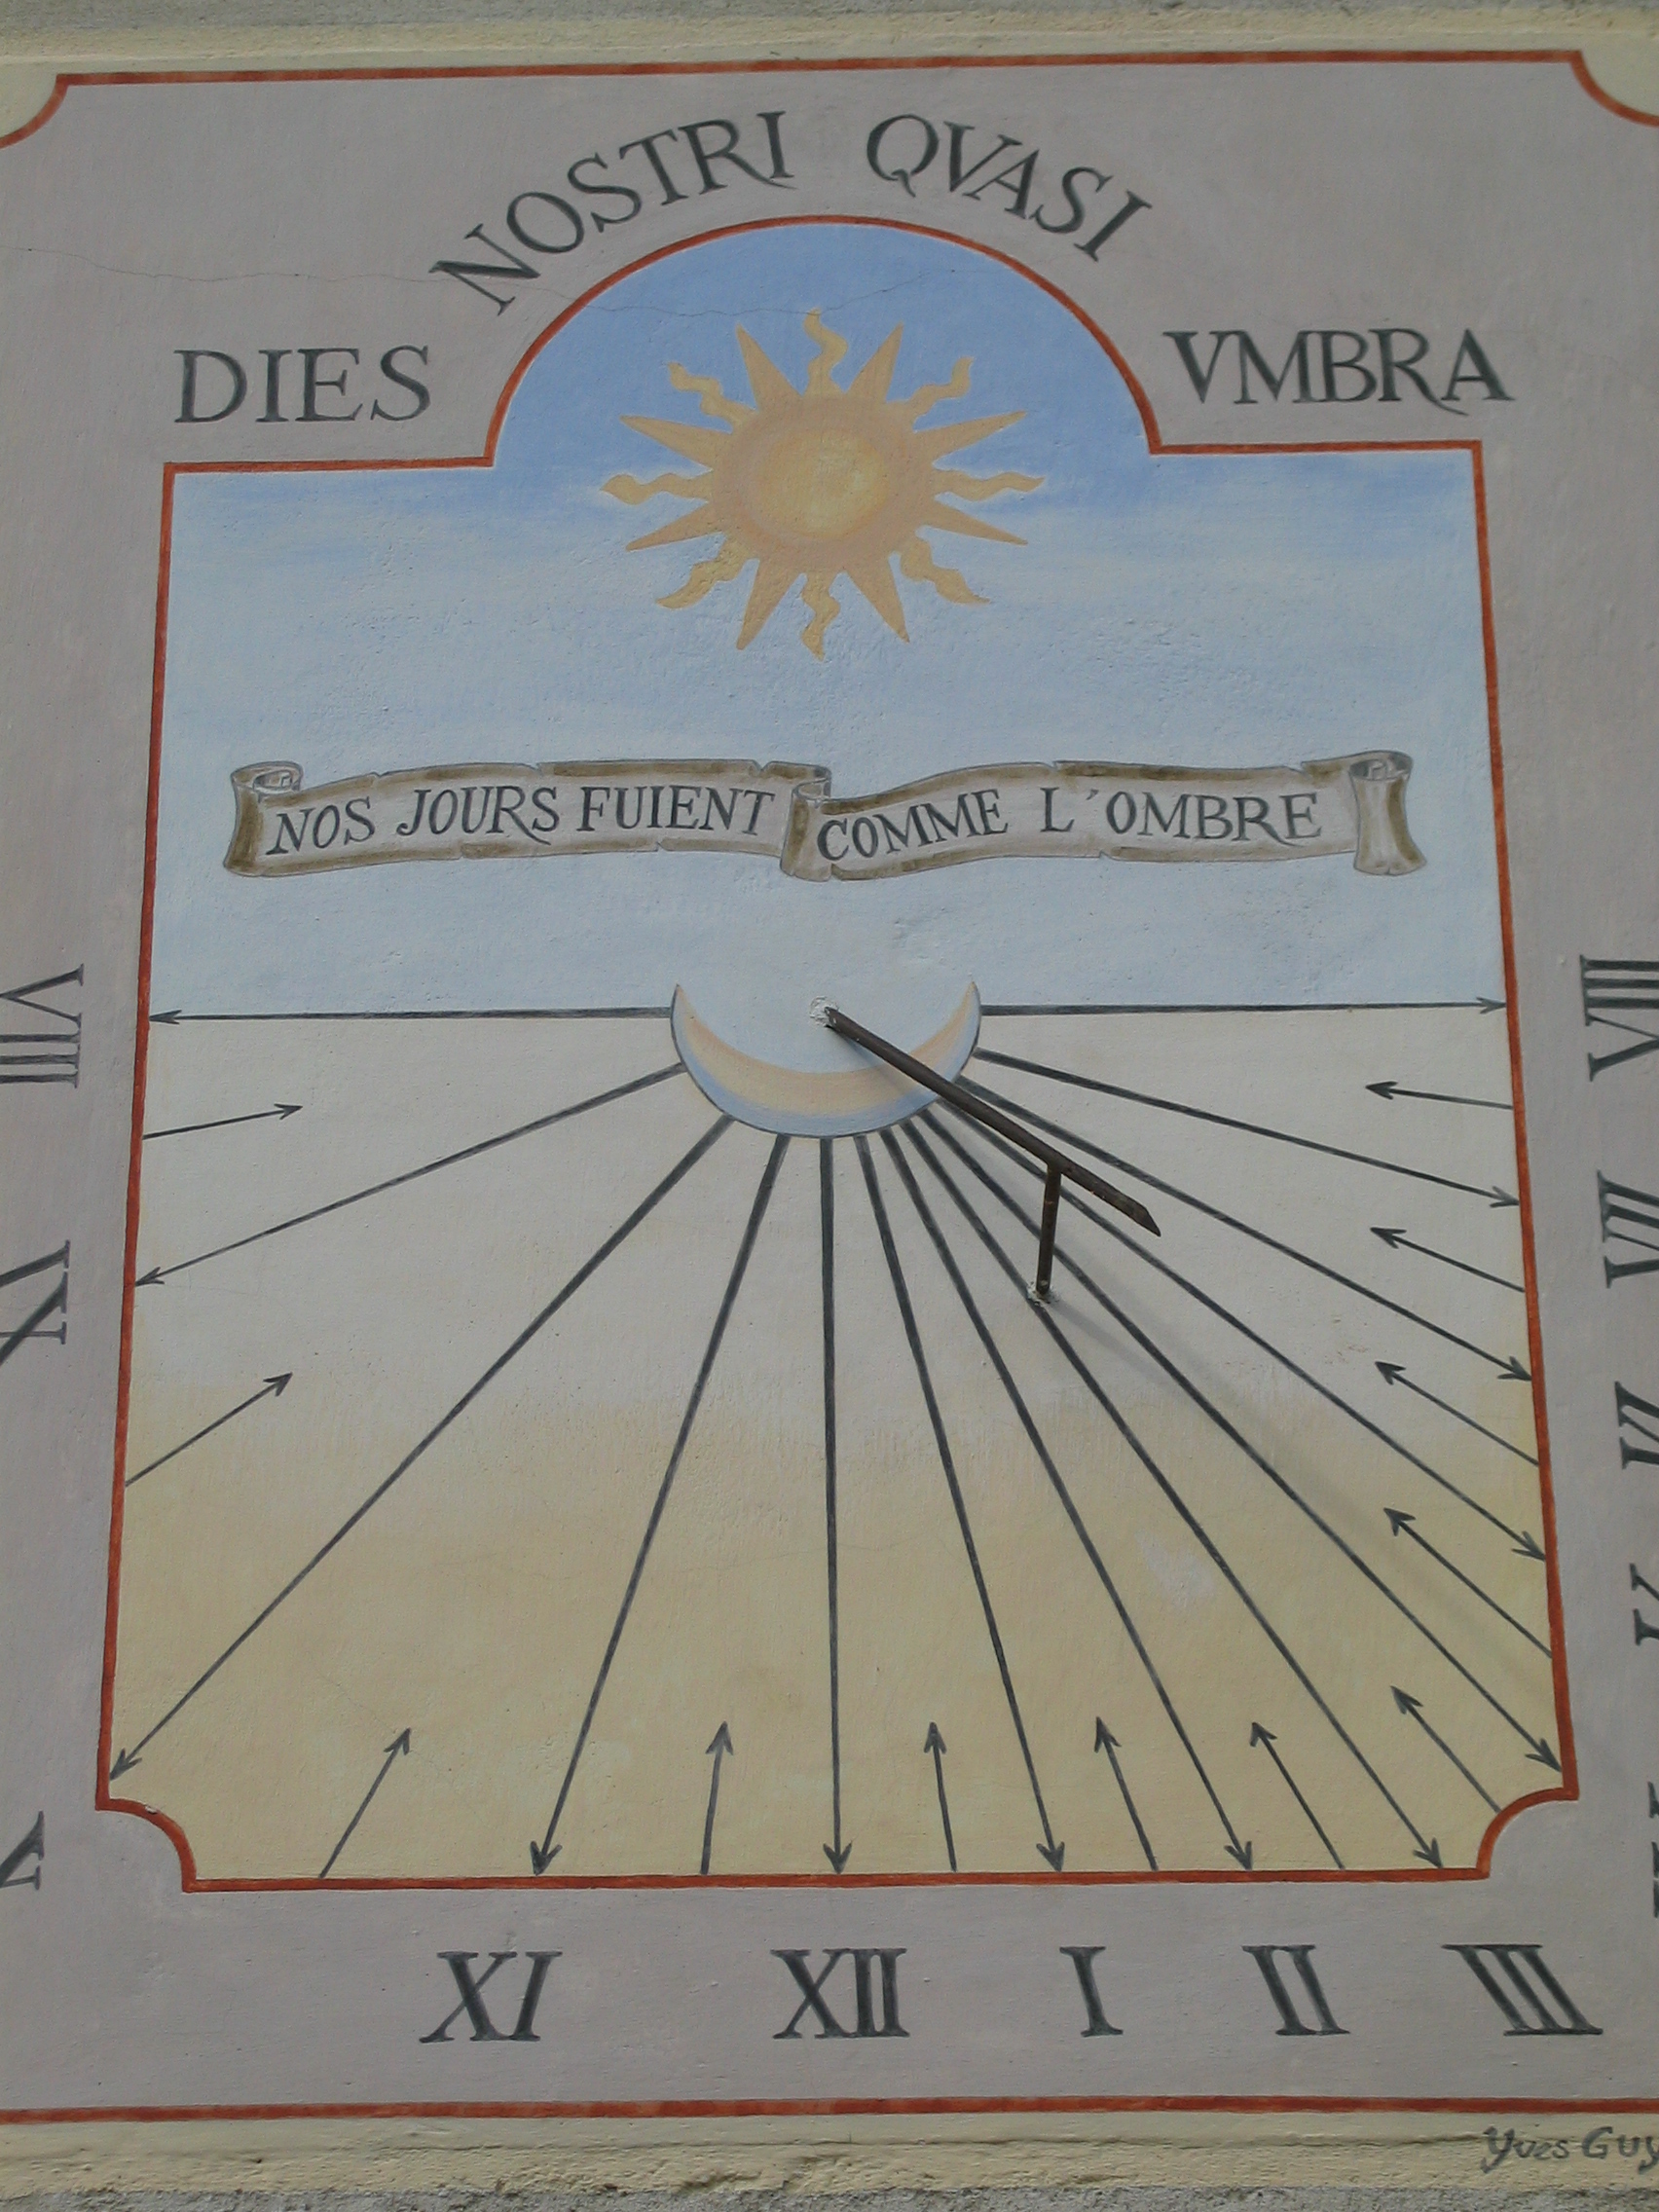 DIES NOSTRI QVASI VMBRA
NOS JOURS FUIENT COMME L'OMBRE
VIII
VIII
VII
IX
VI
V
XI
XII
I
II
III
Yves Guy